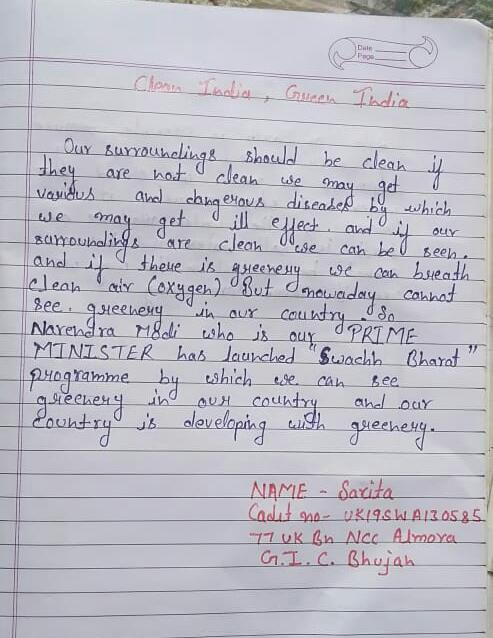 Date
Page
Clean India, Green India
Our surroundings should be clean if
they are not clean we may get
various and dangerous diseases by which
we may get ill effect. and if our
surroundings are clean we can be seen.
and if there is greenery we can breath
clean air (oxygen) But nowaday cannot
see. greenery in our country. So
Narendra Modi who is our PRIME
MINISTER has launched "Swachh Bharat"
programme by which we can see
greenery in our country and our
country is developing with greenery.
NAME - Sarita
Cadet no- UK19SWA130585
77 UK Bn NCC Almora
G.I.C. Bhujan